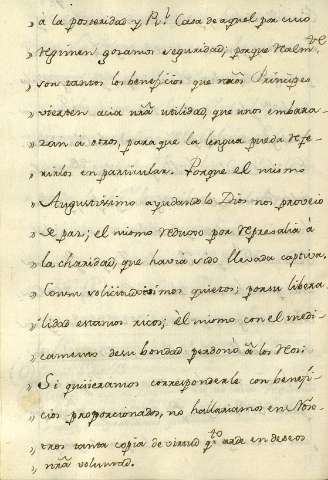 „ à la posteridad y Rl. Casa de aquel por cuio
„ regimen gozamos seguridad; porque realmte
„ son tantos los beneficios que nrõs Principes
„ vierten àcia nrã utilidad, que unos embara-
„ zan à otros, para que la lengua pueda refe-
„ rirlos en particular. Porque el mismo
„ Augustissimo ayudandolo Dios nos proveiò
„ de paz; el mismo reduxo por represalia à
„ la charidad, que havia sido llevada captiva.
„ Con su solicitud vivimos quietos; por su libera-
„ lidad estamos ricos; èl mismo con el medi-
„ camento de su bondad perdonò à los reos:
„ Si quisieramos corresponderle con benefi-
„ cios proporcionados, no hallariamos en Noso-
„ tros tanta copia de virtud qto arde en deseos
„ nrã voluntad.